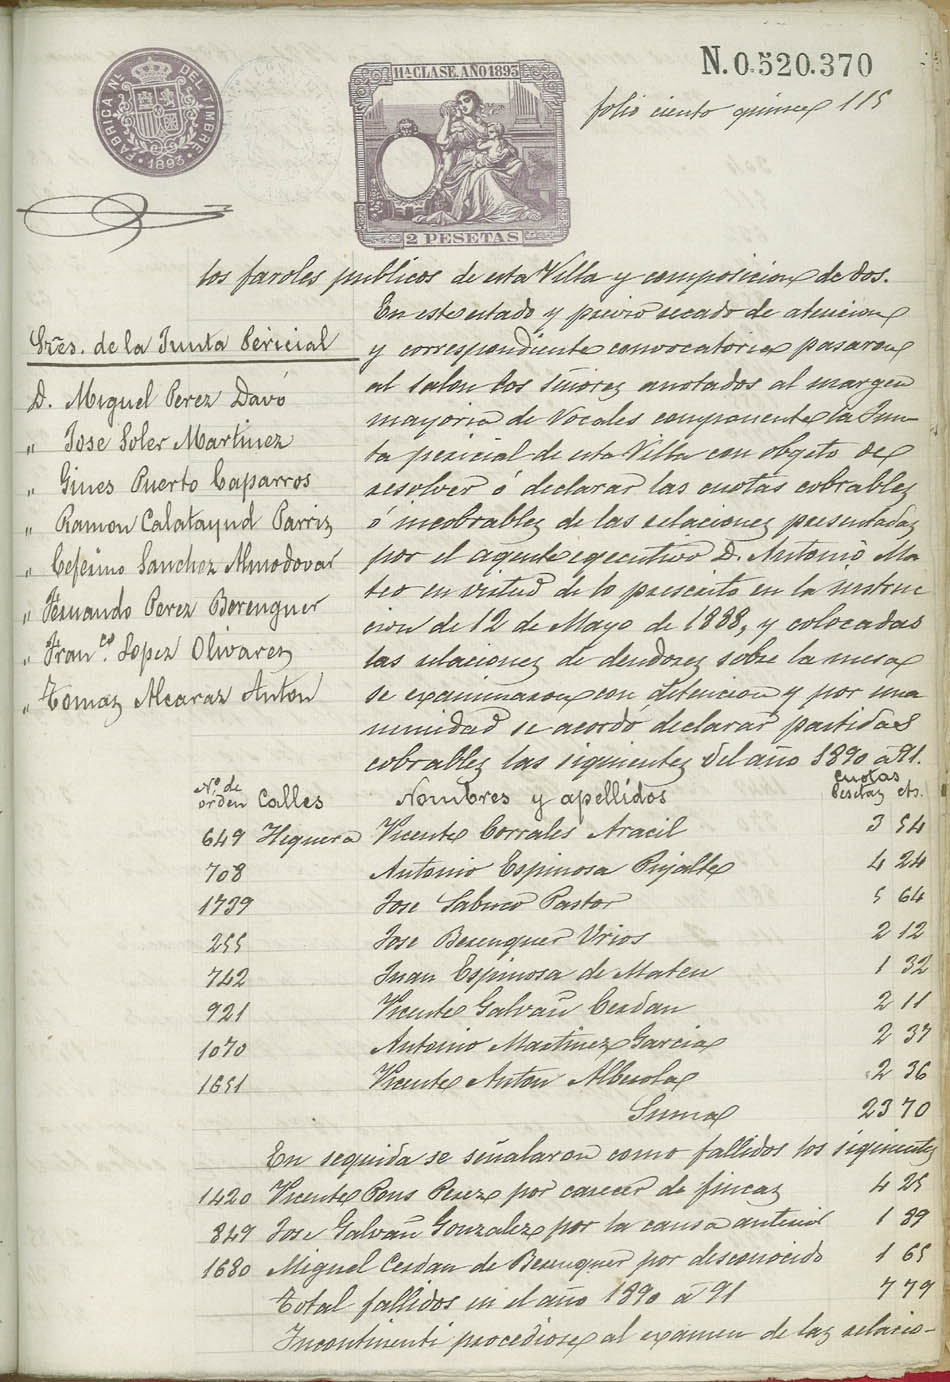 FABRICA NAL. DEL TIMBRE
1893
11ª CLASE. AÑO 1893
2 PESETAS
N.0.520.370
folio ciento quince 115
los faroles publicos de esta Villa y composicion de dos.
En este estado y previo recado de atencion
y correspondiente convocatoria pasaron
al salon los señores anotados al margen
mayoria de Vocales componente la Jun-
ta pericial de esta Villa con objeto de
resolver ó declarar las cuotas cobrables
ó incobrables de las relaciones presentadas
por el agente egecutivo D. Antonio Ma-
teo en virtud de lo prescrito en la instruc
cion de 12 de Mayo de 1888, y colocadas
las relaciones de deudores sobre la mesa
se examinaron con detencion y por una
nimidad se acordó declarar partidas
cobrables las siguientes del año 1890 á 91.
Sres. de la Junta Pericial
D. Miguel Perez Davó
" Jose Soler Martinez
" Gines Puerto Caparros
" Ramon Calatayud Parriz
" Ceferino Sanchez Almodovar
" Fernando Perez Berenguer
" Franco. Lopez Olivarez
" Tomas Alcaraz Anton
No. de orden Calles Nombres y apellidos Cuotas Pesetas cts.
649 Higuera Vicente Corrales Aracil 3 54
708 Antonio Espinosa Pujalte 4 24
1739 Jose Sabuco Pastor 5 64
255 Jose Berenguer Urios 2 12
742 Juan Espinosa de Mateu 1 32
921 Vicente Galvañ Cerdan 2 11
1070 Antonio Martinez Garcia 2 37
1651 Vicente Anton Alberola 2 36
Suma 23 70
En seguida se señalaron como fallidos los siguientes
1420 Vicente Pons Perez por carecer de fincas 4 25
849 Jose Galvañ Gonzalez por la causa anterior 1 89
1680 Miguel Cerdan de Berenguer por desconocido 1 65
Total fallidos en el año 1890 á 91 7 79
Incontinenti procediose al examen de las relacio-